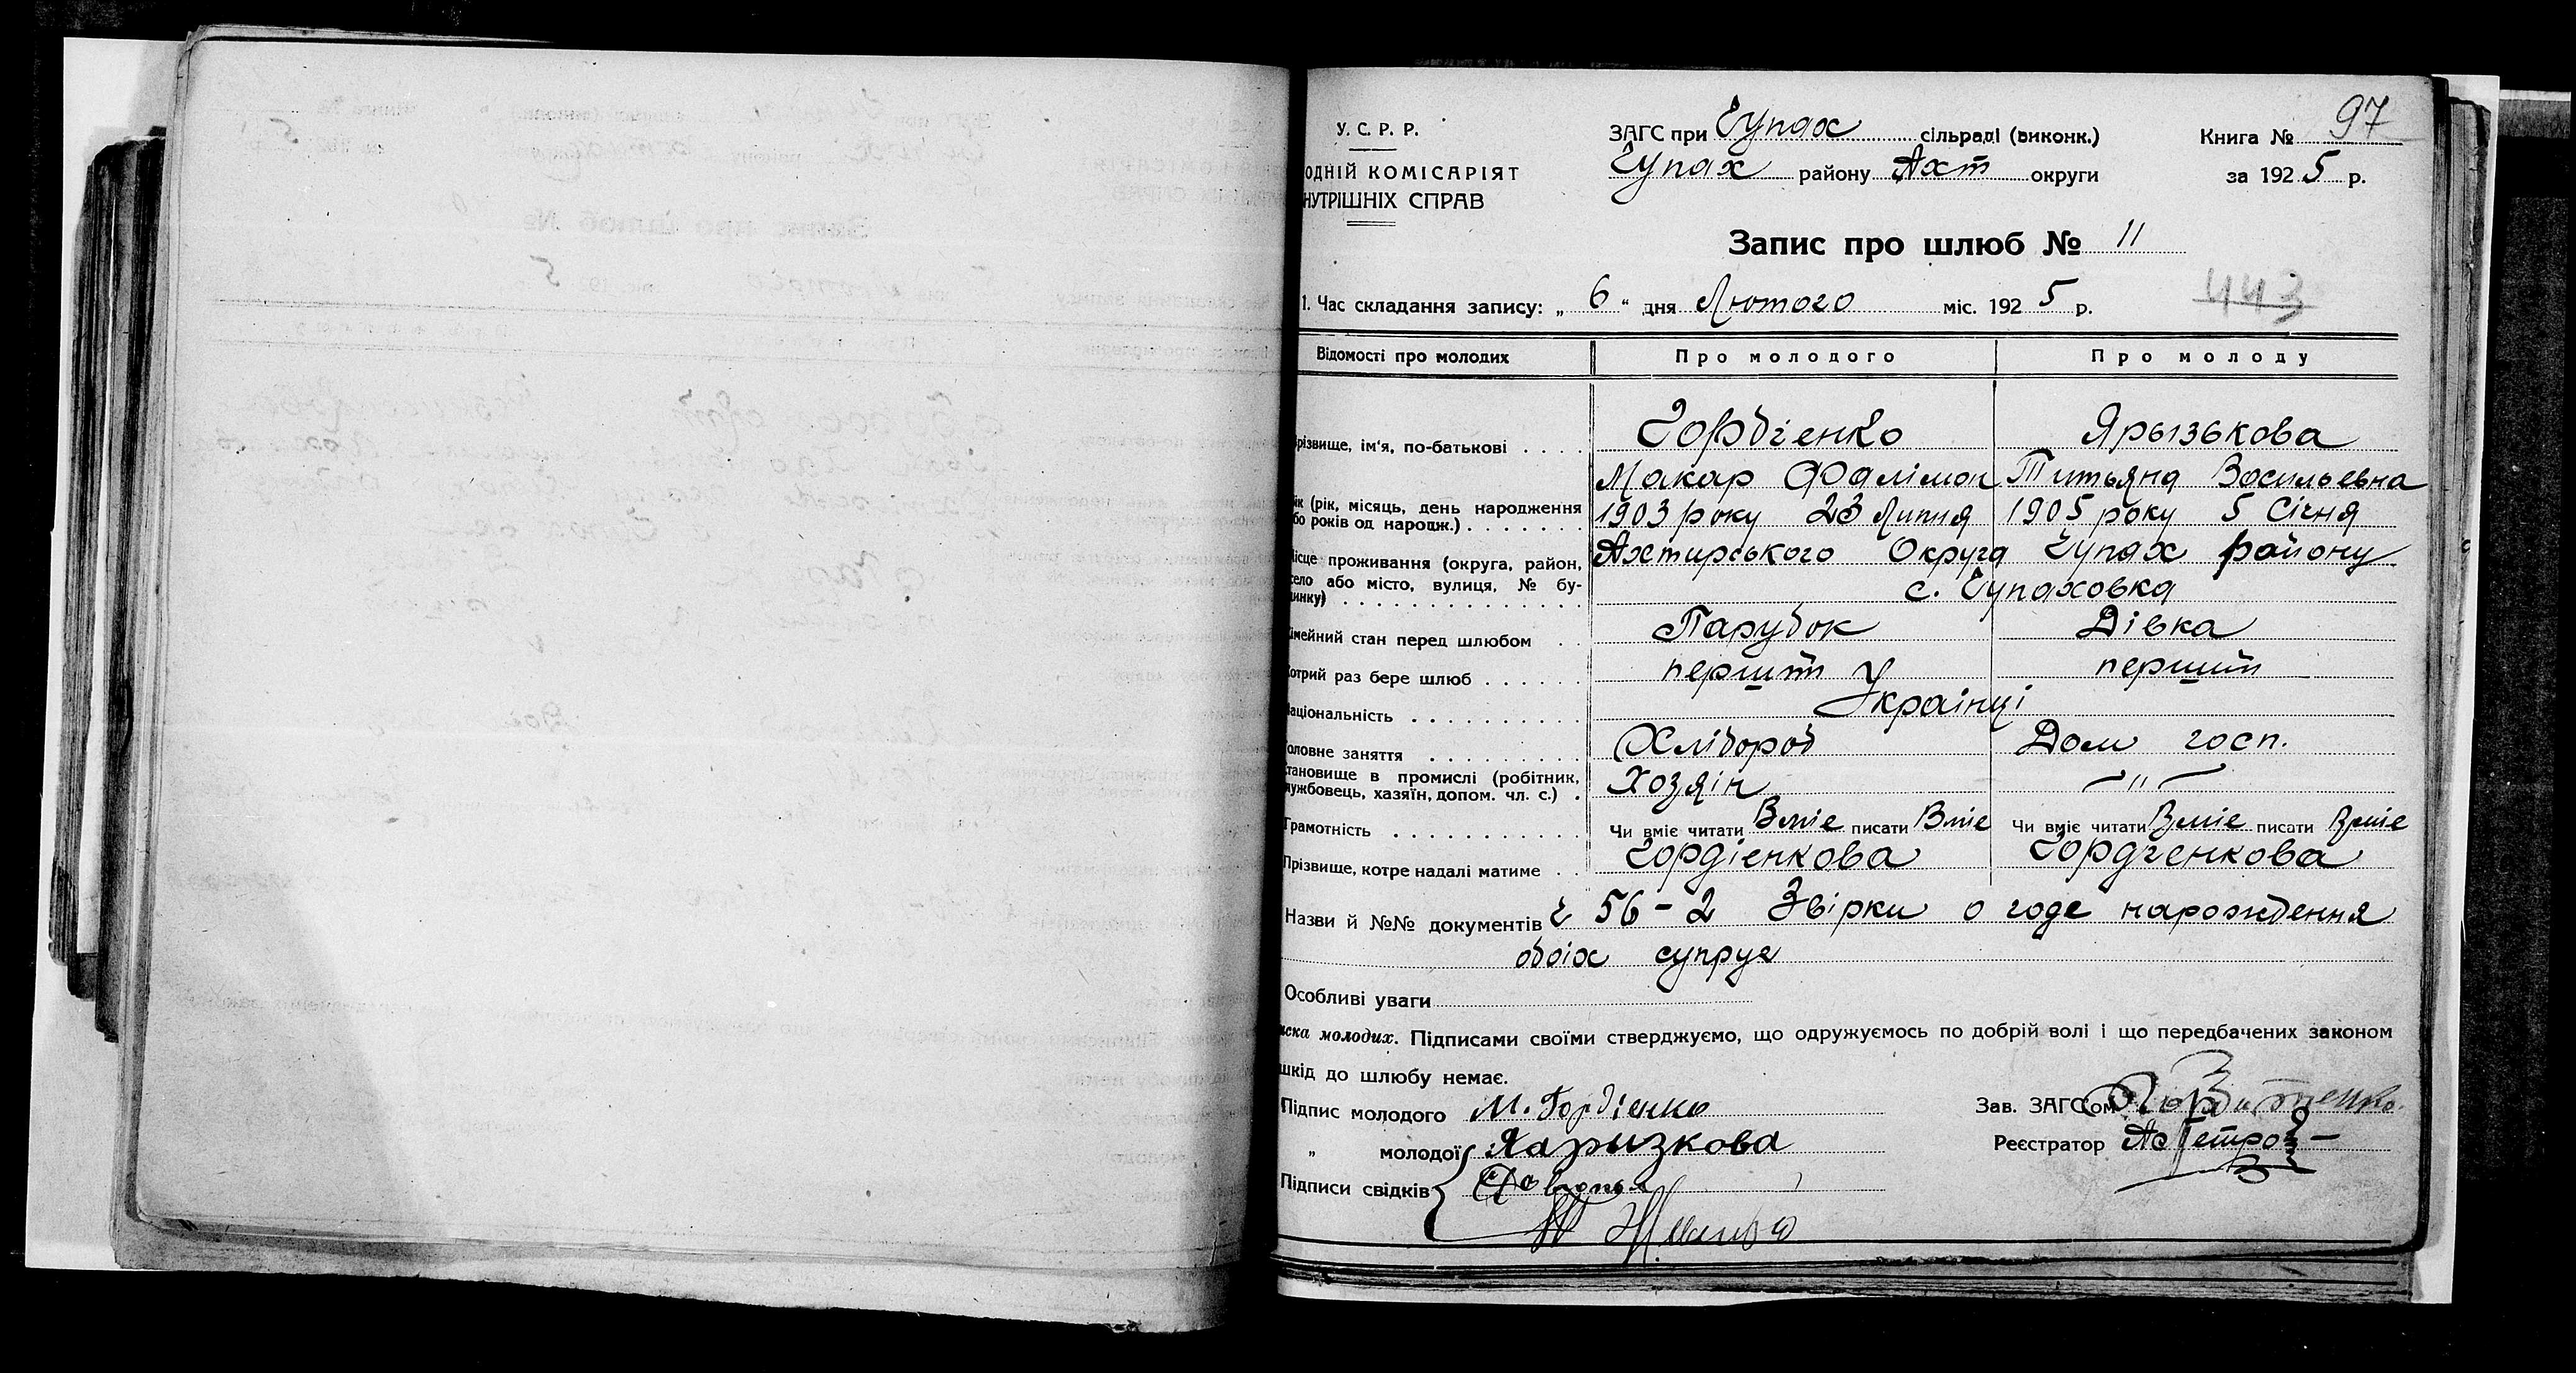 У. С. Р. Р.
ОДНІЙ КОМІСАРІЯТ
НУТРІШНІХ СПРАВ
ЗАГС при Чупах сільраді (виконк.)
Чупах району Ахт округи
Книга № 97
за 1925 р.
Запис про шлюб № 11
443
1. Час складання запису: „ 6 “ дня Лютого міс. 1925 р.
Відомості про молодих Про молодого Про молоду
різвище, ім'я, по-батькові . . . . Гордіенко Ярызькова
Макар Фалімон Титьяна Васильевна
ік (рік, місяць, день народження
бо років од народж.) . . . . . . . 1903 року 23 Липня 1905 року 5 Січня
ісце проживання (округа, район, Ахтирського Округа Чупах району
село або місто, вулиця, № бу-
инку) . . . . . . . . . . . . . . с. Чупаховка
імейний стан перед шлюбом . . Парубок Дівка
отрий раз бере шлюб . . . . . . перший перший
аціональність . . . . . . . . . . . Українці
оловне заняття . . . . . . . . . . Хлібороб Дом госп.
тановище в промислі (робітник,
лужбовець, хазяїн, допом. чл. с.) . Хозяін — " —
Грамотність . . . . . . . . . . . . Чи вміє читати Вміе писати Вміе Чи вміє читати Вміе писати Вміе
Прізвище, котре надалі матиме . . Гордіенкова Гордіенкова
Назви й №№ документів ч 56-2 Звірки о годе нарождення
обоіх супруг
Особливі уваги
иска молодих. Підписами своїми стверджуємо, що одружуємось по добрій волі і що передбачених законом
шкід до шлюбу немає.
Підпис молодого М. Гордіенко
Зав. ЗАГСом
„ молодої Яаризкова
Реєстратор
Підписи свідків